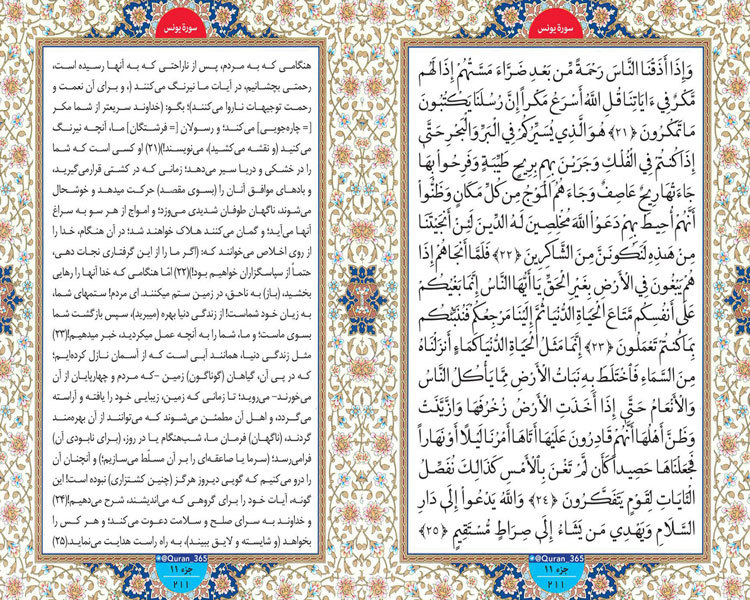 سورة یونس
وَإِذَا أَذَقْنَا النَّاسَ رَحْمَةً مِّن بَعْدِ ضَرَّاءَ مَسَّتْهُمْ إِذَا لَهُم
مَّكْرٌ فِي ءَايَاتِنَا قُلِ اللَّهُ أَسْرَعُ مَكْرًا إِنَّ رُسُلَنَا يَكْتُبُونَ
مَا تَمْكُرُونَ ﴿٢١﴾ هُوَ الَّذِي يُسَيِّرُكُمْ فِي الْبَرِّ وَالْبَحْرِ حَتَّى
إِذَا كُنتُمْ فِي الْفُلْكِ وَجَرَيْنَ بِهِم بِرِيحٍ طَيِّبَةٍ وَفَرِحُوا بِهَا
جَاءَتْهَا رِيحٌ عَاصِفٌ وَجَاءَهُمُ الْمَوْجُ مِن كُلِّ مَكَانٍ وَظَنُّوا
أَنَّهُمْ أُحِيطَ بِهِمْ دَعَوُا اللَّهَ مُخْلِصِينَ لَهُ الدِّينَ لَئِنْ أَنجَيْتَنَا
مِنْ هَذِهِ لَنَكُونَنَّ مِنَ الشَّاكِرِينَ ﴿٢٢﴾ فَلَمَّا أَنجَاهُمْ إِذَا
هُمْ يَبْغُونَ فِي الْأَرْضِ بِغَيْرِ الْحَقِّ يَا أَيُّهَا النَّاسُ إِنَّمَا بَغْيُكُمْ
عَلَى أَنفُسِكُم مَّتَاعَ الْحَيَاةِ الدُّنْيَا ثُمَّ إِلَيْنَا مَرْجِعُكُمْ فَنُنَبِّئُكُم
بِمَا كُنتُمْ تَعْمَلُونَ ﴿٢٣﴾ إِنَّمَا مَثَلُ الْحَيَاةِ الدُّنْيَا كَمَاءٍ أَنزَلْنَاهُ
مِنَ السَّمَاءِ فَاخْتَلَطَ بِهِ نَبَاتُ الْأَرْضِ مِمَّا يَأْكُلُ النَّاسُ
وَالْأَنْعَامُ حَتَّى إِذَا أَخَذَتِ الْأَرْضُ زُخْرُفَهَا وَازَّيَّنَتْ
وَظَنَّ أَهْلُهَا أَنَّهُمْ قَادِرُونَ عَلَيْهَا أَتَاهَا أَمْرُنَا لَيْلًا أَوْ نَهَارًا
فَجَعَلْنَاهَا حَصِيدًا كَأَن لَّمْ تَغْنَ بِالْأَمْسِ كَذَالِكَ نُفَصِّلُ
الْآيَاتِ لِقَوْمٍ يَتَفَكَّرُونَ ﴿٢٤﴾ وَاللَّهُ يَدْعُوا إِلَى دَارِ
السَّلَامِ وَيَهْدِي مَن يَشَاءُ إِلَى صِرَاطٍ مُّسْتَقِيمٍ ﴿٢٥﴾
@Quran_365
جزء ۱۱
۲۱۱
سورة یونس
هنگامی که به مردم، پس از ناراحتی که به آنها رسیده است،
رحمتی بچشانیم، در آیات ما نیرنگ می‌کنند (، و برای آن نعمت و
رحمت توجیهات ناروا می‌کنند)؛ بگو: (خداوند سریعتر از شما مکر
[= چاره‌جویی] می‌کند؛ و رسولان [= فرشتگان] ما، آنچه نیرنگ
می‌کنید (و نقشه می‌کشید)، می‌نویسند!)(۲۱) او کسی است که شما
را در خشکی و دریا سیر می‌دهد؛ زمانی که در کشتی قرارمی‌گیرید،
و بادهای موافق آنان را (بسوی مقصد) حرکت میدهد و خوشحال
می‌شوند، ناگهان طوفان شدیدی می‌وزد؛ و امواج از هر سو به سراغ
آنها می‌آید؛ و گمان می‌کنند هلاک خواهند شد؛ در آن هنگام، خدا را
از روی اخلاص می‌خوانند که: (اگر ما را از این گرفتاری نجات دهی،
حتماً از سپاسگزاران خواهیم بود!)(۲۲) امّا هنگامی که خدا آنها را رهایی
بخشید، (باز) به ناحق، در زمین ستم میکنند. ای مردم! ستمهای شما،
به زیان خود شماست! از زندگی دنیا بهره (میبرید)، سپس بازگشت شما
بسوی ماست؛ و ما، شما را به آنچه عمل میکردید، خبر میدهیم!(۲۳)
مثل زندگی دنیا، همانند آبی است که از آسمان نازل کرده‌ایم؛
که در پی آن، گیاهان (گوناگون) زمین -که مردم و چهارپایان از آن
می‌خورند- می‌روید؛ تا زمانی که زمین، زیبایی خود را یافته و آراسته
می‌گردد، و اهل آن مطمئن می‌شوند که می‌توانند از آن بهره‌مند
گردند، (ناگهان) فرمان ما، شب‌هنگام یا در روز، (برای نابودی آن)
فرامی‌رسد؛ (سرما یا صاعقه‌ای را بر آن مسلّط می‌سازیم؛) و آنچنان آن
را درو می‌کنیم که گویی دیروز هرگز (چنین کشتزاری) نبوده است! این
گونه، آیات خود را برای گروهی که می‌اندیشند، شرح می‌دهیم!(۲۴)
و خداوند به سرای صلح و سلامت دعوت می‌کند؛ و هر کس را
بخواهد (و شایسته و لایق ببیند)، به راه راست هدایت می‌نماید(۲۵)
@Quran_365
جزء ۱۱
۲۱۱